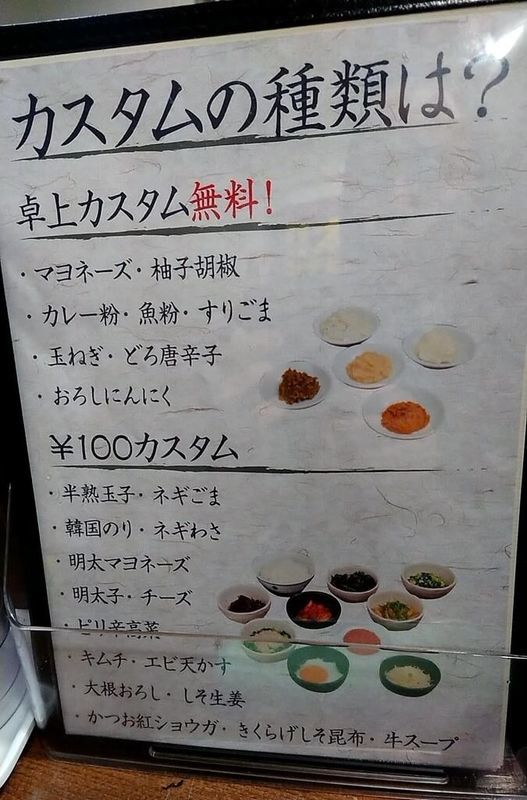 カスタムの種類は?
卓上カスタム無料!
・マヨネーズ・柚子胡椒
・カレー粉・魚粉・すりごま
・玉ねぎ・どろ唐辛子
・おろしにんにく
¥100カスタム
・半熟玉子・ネギごま
・韓国のり・ネギわさ
・明太マヨネーズ
・明太子・チーズ
・ピリ辛高菜
・キムチ・エビ天かす
・大根おろし・しそ生姜
・かつお紅ショウガ・きくらげしそ昆布・牛スープ